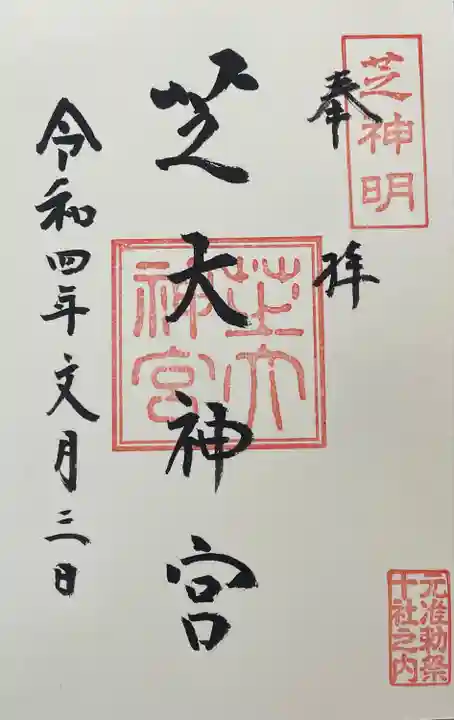 芝神明
奉拝
芝大神宮
芝大
神宮
令和四年文月三日
元准勅祭
十社之内